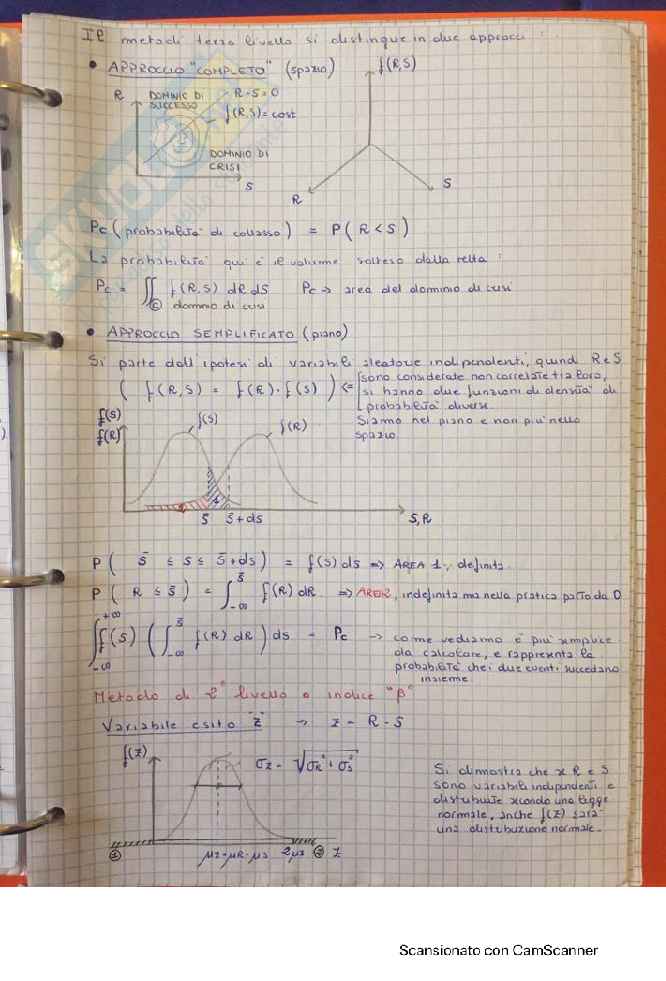 Il metodi terzo livello si distingue in due approcci :
• APPROCCIO "COMPLETO" (spazio)
f(R,S)
R
DOMINIO DI SUCCESSO
R-S=0
f(R,S)=cost
DOMINIO DI CRISI
S
R
S
Pc (probabilità di collasso) = P(R<S)
La probabilità qui è il volume sotteso dalla retta :
Pc = ∬ f(R,S) dR dS Pc => area del dominio di crisi
© dominio di crisi
• APPROCCIO SEMPLIFICATO (piano)
Si parte dall'ipotesi di variabili aleatorie indipendenti, quindi R e S
( f(R,S) = f(R)·f(S) ) <= sono considerate non correlate tra loro,
si hanno due funzioni di densità di
probabilità diverse.
Siamo nel piano e non più nello
spazio
f(S)
f(R)
f(S)
f(R)
s̄ s̄+ds
S,R
P( s̄ ≤ s ≤ s̄+ds) = f(s) ds => AREA 1, definita.
P( R ≤ s̄) = ∫_{-∞}^{s̄} f(R) dR => AREA 2, indefinita ma nella pratica parto da 0
∫_{-∞}^{+∞} f(s) ( ∫_{-∞}^{s̄} f(R) dR ) ds = Pc -> come vediamo è più semplice
da calcolare, e rappresenta la
probabilità che i due eventi succedano
insieme
Metodo di 2° livello o indice "β"
Variabile esito "z" -> z = R-S
f(z)
σz = √σR²+σS²
Si dimostra che x R e S
sono variabili indipendenti e
distribuite secondo una legge
normale, anche f(z) sarà
una distribuzione normale.
μz=μR-μs 2μz z